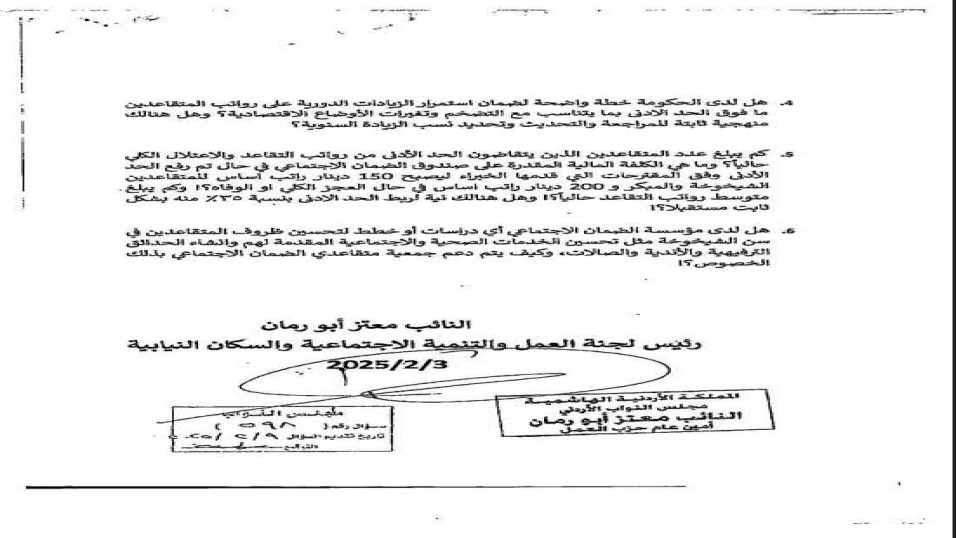 4. هل لدى الحكومة خطة واضحة لضمان استمرار الزيادات الدورية على رواتب المتقاعدين
ما فوق الحد الادنى بما يتناسب مع التضخم وتغيرات الأوضاع الاقتصادية؟ وهل هنالك
منهجية ثابتة للمراجعة والتحديث وتحديد نسب الزيادة السنوية؟
5. كم يبلغ عدد المتقاعدين الذين يتقاضون الحد الأدنى من رواتب التقاعد والاعتلال الكلي
حالياً؟ وما هي الكلفة المالية المقدرة على صندوق الضمان الاجتماعي في حال تم رفع الحد
الأدنى وفق المقترحات التي قدمها الخبراء ليصبح 150 دينار راتب أساس للمتقاعدين
الشيخوخة والمبكر و 200 دينار راتب اساس في حال العجز الكلي او الوفاه؟! وكم يبلغ
متوسط رواتب التقاعد حالياً؟! وهل هنالك نية لربط الحد الادنى بنسبة ٣٥٪ منه بشكل
ثابت مستقبلا؟!
6. هل لدى مؤسسة الضمان الاجتماعي أي دراسات أو خطط لتحسين ظروف المتقاعدين في
سن الشيخوخة مثل تحسين الخدمات الصحية والاجتماعية المقدمة لهم وانشاء الحدائق
الترفيهية والأندية والصالات، وكيف يتم دعم جمعية متقاعدي الضمان الاجتماعي بذلك
الخصوص؟!
النائب معتز أبو رمان
رئيس لجنة العمل والتنمية الاجتماعية والسكان النيابية
2025/2/3
المملكة الأردنية الهاشمية
مجلس النواب الأردني
النائب معتز أبو رمان
أمين عام حزب العمل
مجلس النواب
سؤال رقم ( ٥٩٨ )
تاريخ تقديم السؤال ٢/٩
التوقيع